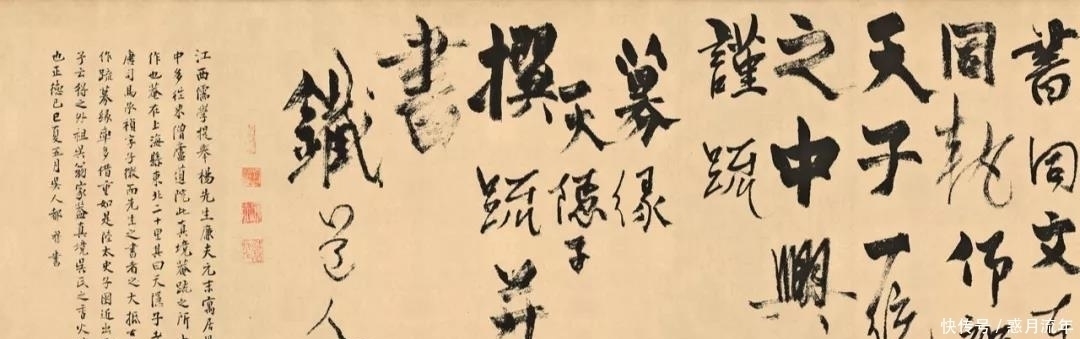 書同文車
同
天子
之中興
謹疏
募缘
天隱子
撰疏并
書
鐵道人
江西儒學提舉楊先生廉夫元末寓居
中多往來僧盧道院此真境菴疏之所
作也菴在上海縣東北二十里其曰天隱子
唐司馬承禎字子微而先生之書者之大抵
作疏募緣率多借重如是陸太史子近出
予云得之外祖吳翁家盖真境吳氏之香火
也正德己巳夏五月吳人都穆書
快传号 / 惑月流年